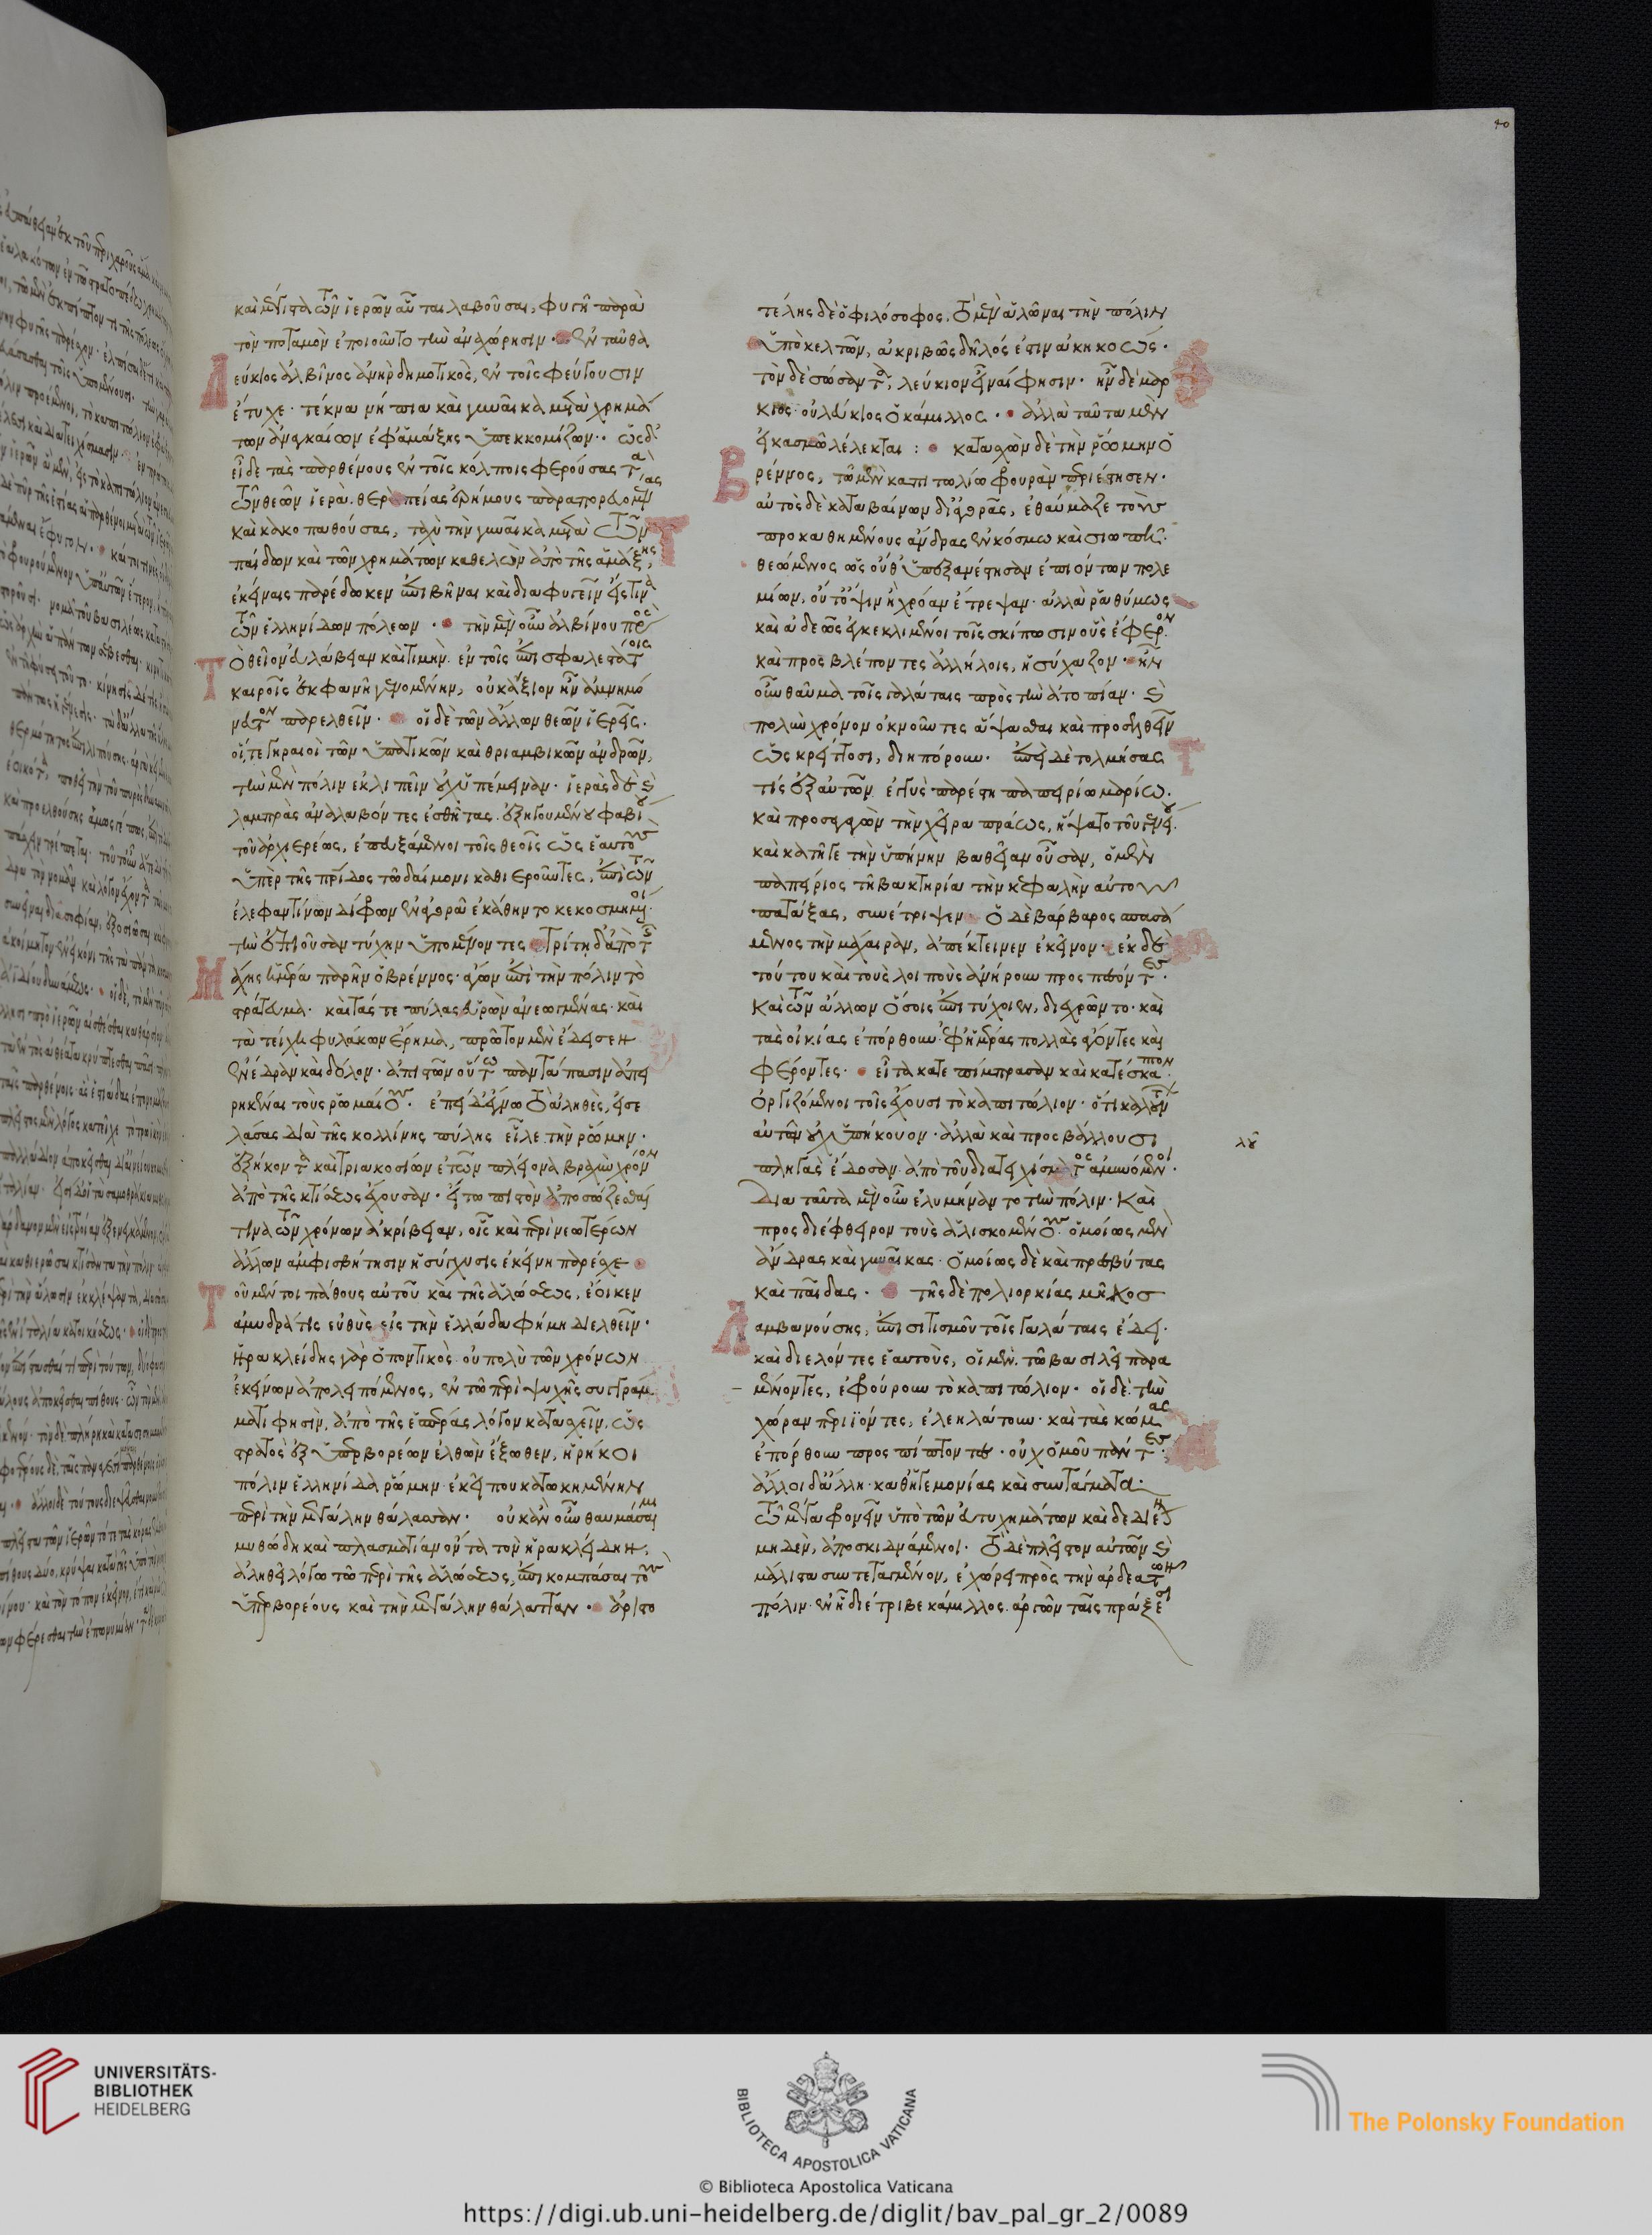 40
καὶ μέγιστα τῶν ἱερῶν αὗται λαβοῦσαι, φυγῆ παρὰ
τὸν ποταμὸν ἐποιοῦντο τὴν ἀναχώρησιν· ἐνταῦθα
Λεύκιος ἀλβῖνος ἀνὴρ δημοτικὸς, ἐν τοῖς φεύγουσιν
ἔτυχε· τέκνα νήπια καὶ γυναῖκα μετὰ χρημά
των ἀναγκαίων ἐφ' ἁμάξης ὑπεκκομίζων· ὡς δ'
εἶδε τὰς παρθένους ἐν τοῖς κόλποις φερούσας τὰ
τῶν θεῶν ἱερὰ. θεραπείας ἐρήμους παραπορευομένας
καὶ κακοπαθούσας, ταχὺ τὴν γυναῖκα μετὰ τῶν
παίδων καὶ τῶν χρημάτων καθελὼν ἀπὸ τῆς ἁμάξης,
ἐκείναις παρέδωκεν ἐπιβῆναι καὶ διαφυγεῖν εἴς τινα
τῶν ἑλληνίδων πόλεων· τὴν μὲν οὖν ἀλβίνου πρὸς
Τὸ θεῖον εὐλάβειαν καὶ τιμὴν. ἐν τοῖς ἐπισφαλεστάτοις
καιροῖς ἐκφανῆ γενομένην, οὐκ ἄξιον ἦν ἀμνημό
νευτον παρελθεῖν· οἱ δὲ τῶν ἄλλων θεῶν ἱερεῖς.
οἵ τε γηραιοὶ τῶν ὑπατικῶν καὶ θριαμβικῶν ἀνδρῶν,
τὴν μὲν πόλιν ἐκλιπεῖν οὐχ ὑπέμειναν. ἱερὰς δὲ καὶ
λαμπρὰς ἀναλαβόντες ἐσθῆτας. ἐξηγουμένου φαβίου
τοῦ ἀρχιερέως, ἐπευξάμενοι τοῖς θεοῖς ὡς ἑαυτοὺς
ὑπὲρ τῆς πατρίδος τῶ δαίμονι καθιεροῦντες, ἐπὶ τῶν
ἐλεφαντίνων δίφρων ἐν ἀγορᾶ ἐκάθηντο κεκοσμημένοι·
τὴν ἐπιοῦσαν τύχην ὑπομένοντες· Τρίτη δ' ἀπὸ τῆς
Μάχης ἡμέρα παρῆν ὁ βρέννος· ἄγων ἐπὶ τὴν πόλιν τὸ
στράτευμα· καὶ τάς τε πύλας εὑρὼν ἀνεωγμένας· καὶ
τὰ τείχη φυλάκων ἔρημα, πρῶτον μὲν ἔδεισεν
ἐνέδραν καὶ δόλον· ἀπιστῶν οὕτω παντάπασιν ἀπει
ρηκέναι τοὺς ῥωμαίους. ἐπεὶ δ' ἔγνω τὸ ἀληθὲς, εἰσε
λάσας διὰ τῆς κολλίνης πύλης εἷλε τὴν ῥώμην·
ἑξήκοντα καὶ τριακοσίων ἐτῶν πλείονα βραχὺν χρόνον
ἀπὸ τῆς κτίσεως ἔχουσαν· εἴ τω πιστὸν ἀποσώζεσθαί
τινα τῶν χρόνων ἀκρίβειαν, οἷς καὶ περὶ νεωτέρων
ἄλλων ἀμφισβήτησιν ἡ σύγχυσις ἐκείνη παρέσχε
Τοῦ μέντοι πάθους αὐτοῦ καὶ τῆς ἁλώσεως, ἔοικεν
ἀμυδρά τις εὐθὺς εἰς τὴν ἑλλάδα φήμη διελθεῖν·
Ἡρακλείδης γὰρ ὁ ποντικὸς οὐ πολὺ τῶν χρόνων
ἐκείνων ἀπολειπόμενος, ἐν τῶ περὶ ψυχῆς συγγράμ
ματί φησιν, ἀπὸ τῆς ἑσπέρας λόγον κατασχεῖν, ὡς
στρατὸς ἐξ ὑπερβορέων ἐλθὼν ἔξωθεν, ἡρήκοι
πόλιν ἑλληνίδα ῥώμην· ἐκεῖ που κατωκημένην
περὶ τὴν μεγάλην θάλασσαν· οὐκ ἂν οὖν θαυμάσαιμι
μυθώδη καὶ πλασματίαν ὄντα τὸν ἡρακλείδην,
ἀληθεῖ λόγω τῶ περὶ τῆς ἁλώσεως, ἐπικομπάσαι τοὺς
ὑπερβορέους καὶ τὴν μεγάλην θάλατταν· ἀριστο
τέλης δὲ ὁ φιλόσοφος. τὸ μὲν ἁλῶναι τὴν πόλιν
ὑπὸ κελτῶν, ἀκριβῶς δῆλός ἐστιν ἀκηκοώς·
τὸν δὲ σώσαντα, λεύκιον εἶναί φησιν· ἦν δὲ μάρ
κιος· οὐ λεύκιος ὁ κάμιλλος· ἀλλὰ ταῦτα μὲν
εἰκασμῶ λέλεκται: κατασχὼν δὲ τὴν ῥώμην ὁ
Βρέννος, τῶ μὲν καπιτωλίω φρουρὰν περιέστησεν·
αὐτὸς δὲ καταβαίνων δι' ἀγορᾶς, ἐθαύμαζε τοὺς
προκαθημένους ἄνδρας ἐν κόσμω καὶ σιωπῆ·
θεώμενος ὡς οὔθ' ὑπεξανέστησαν ἐπιόντων πολε
μίων, οὔτ' ὄψιν ἢ χρόαν ἔτρεψαν· ἀλλὰ ῥαθύμως
καὶ ἀδεῶς ἐγκεκλιμένοι τοῖς σκίπωσιν οὓς ἔφερον.
καὶ προσβλέποντες ἀλλήλοις, ἡσύχαζον· ἦν
οὖν θαῦμα τοῖς γαλάταις πρὸς τὴν ἀτοπίαν· καὶ
πολὺν χρόνον ὀκνοῦντες ἅψασθαι καὶ προσελθεῖν
ὡς κρείττοσι, διηπόρουν· ἐπεὶ δὲ τολμήσας
τίς ἐξ αὐτῶν ἐγγὺς παρέστη παπειρίω μαρίω.
καὶ προσαγαγὼν τὴν χεῖρα πράως, ἥψατο τοῦ γενείου.
καὶ κατῆγε τὴν ὑπήνην βαθεῖαν οὖσαν, ὁ μὲν
παπείριος τῆ βακτηρία τὴν κεφαλὴν αὐτοῦ
πατάξας, συνέτριψεν· ὁ δὲ βάρβαρος σπασά
μενος τὴν μάχαιραν, ἀπέκτεινεν ἐκεῖνον· ἐκ δὲ
τούτου καὶ τοὺς λοιποὺς ἀνήρουν προσπεσόντες·
καὶ τῶν ἄλλων ὅσοις ἐπιτύχοιεν, διεχρῶντο· καὶ
τὰς οἰκίας ἐπόρθουν· ἐφ' ἡμέρας πολλὰς ἄγοντες καὶ
φέροντες· εἶτα κατεπίμπρασαν καὶ κατέσκαπτον.
ὀργιζόμενοι τοῖς ἔχουσι τὸ καπιτώλιον· ὅτι καλούντων
αὐτῶν οὐχ ὑπήκουον· ἀλλὰ καὶ προσβάλλουσι
πληγὰς ἔδοσαν ἀπὸ τοῦ διατειχίσματος ἀμυνόμενοι·
διὰ ταῦτα μὲν οὖν ἐλυμήναντο τὴν πόλιν· καὶ
προσδιέφθειρον τοὺς ἁλισκομένους ὁμοίως μὲν
ἄνδρας καὶ γυναῖκας· ὁμοίως δὲ καὶ πρεσβύτας
καὶ παῖδας· τῆς δὲ πολιορκίας μῆκος
Λαμβανούσης, ἐπισιτισμοῦ τοῖς γαλάταις ἔδει·
καὶ διελόντες ἑαυτοὺς, οἱ μὲν τῶ βασιλεῖ παρα
μένοντες, ἐφρούρουν τὸ καπιτώλιον· οἱ δὲ τὴν
χώραν περιϊόντες, ἐλεηλάτουν· καὶ τὰς κώμας
ἐπόρθουν προσπίπτοντες· οὐχ ὁμοῦ πάντες·
ἄλλοι δ' ἄλλη· καθ' ἡγεμονίας καὶ συντάγματα·
τῶ μέγα φρονεῖν ὑπὸ τῶν εὐτυχημάτων καὶ δεδιέναι
μηδὲν, ἀποσκιδνάμενοι· τὸ δὲ πλεῖστον αὐτῶν καὶ
μάλιστα συντεταγμένον, ἐχώρει πρὸς τὴν ἀρδεατῶν
πόλιν· ἐν ἧ διέτριβε κάμιλλος ἀργῶν ταῖς πράξεσι
UNIVERSITÄTS-
BIBLIOTHEK
HEIDELBERG
BIBLIOTECA APOSTOLICA VATICANA
The Polonsky Foundation
© Biblioteca Apostolica Vaticana
https://digi.ub.uni-heidelberg.de/diglit/bav_pal_gr_2/0089